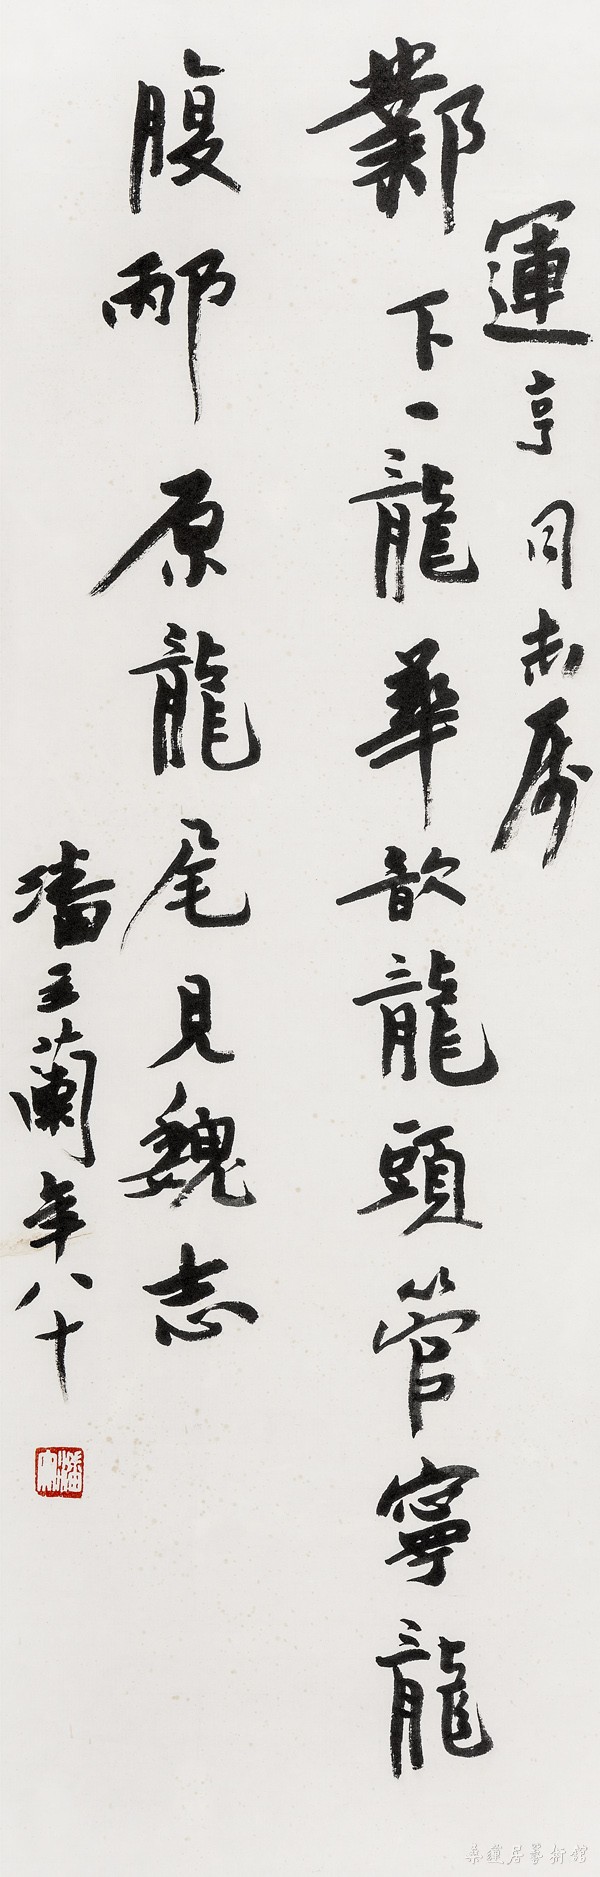 運亨同志屬
鄴下一龍華歆龍頭管寧龍
腹邴原龍尾見魏志
潘主蘭年八十
桑蓮居藝術館